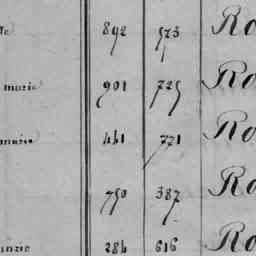 892 573 Ro
marie 901 725 Ro
marie 441 771 Ro
750 387 Ro
marie 284 616 Ro